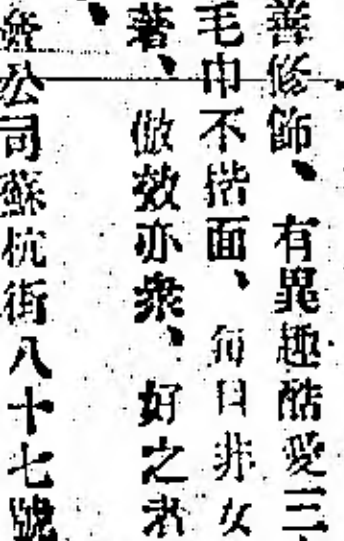 善修飾、有異趣酷愛三
毛巾不揩面、每日非女
著、倣效亦衆、好之者
公司蘇杭街八十七號